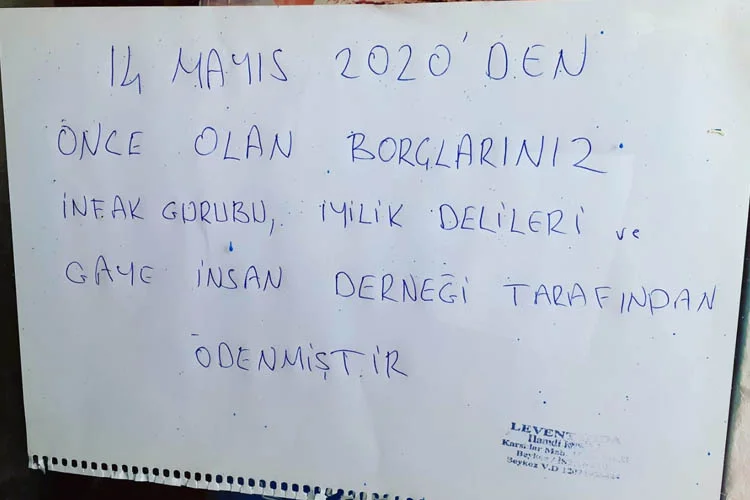 14 MAYIS 2020'DEN
ÖNCE OLAN BORÇLARINIZ
İNFAK GURUBU, İYİLİK DELİLERİ ve
GAYE İNSAN DERNEĞİ TARAFINDAN
ÖDENMİŞTİR
LEVENT
Hamdi
Karslılar Mah.
Beykoz
Beykoz V.D